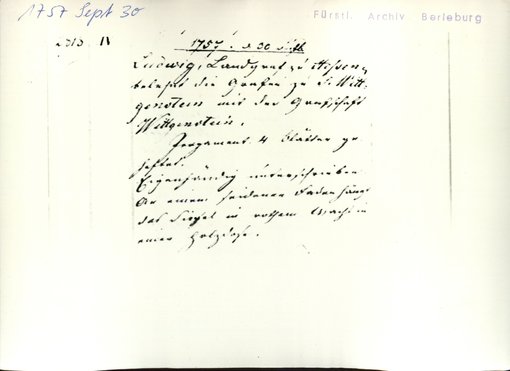 1757 Sept 30
Fürstl. Archiv Berleburg
IV
1757. d 30 Sept
Ludwig, Landgraf zu Hessen,
belehnt die Grafen zu S. Witt-
genstein mit der Grafschaft
Wittgenstein.
Pergament 4 Blätter ge
heftet.
Eigenhändig unterschrieben
An einem seidenen Faden hängt
das Siegel in rothem Wachs in
einer Holzdose.